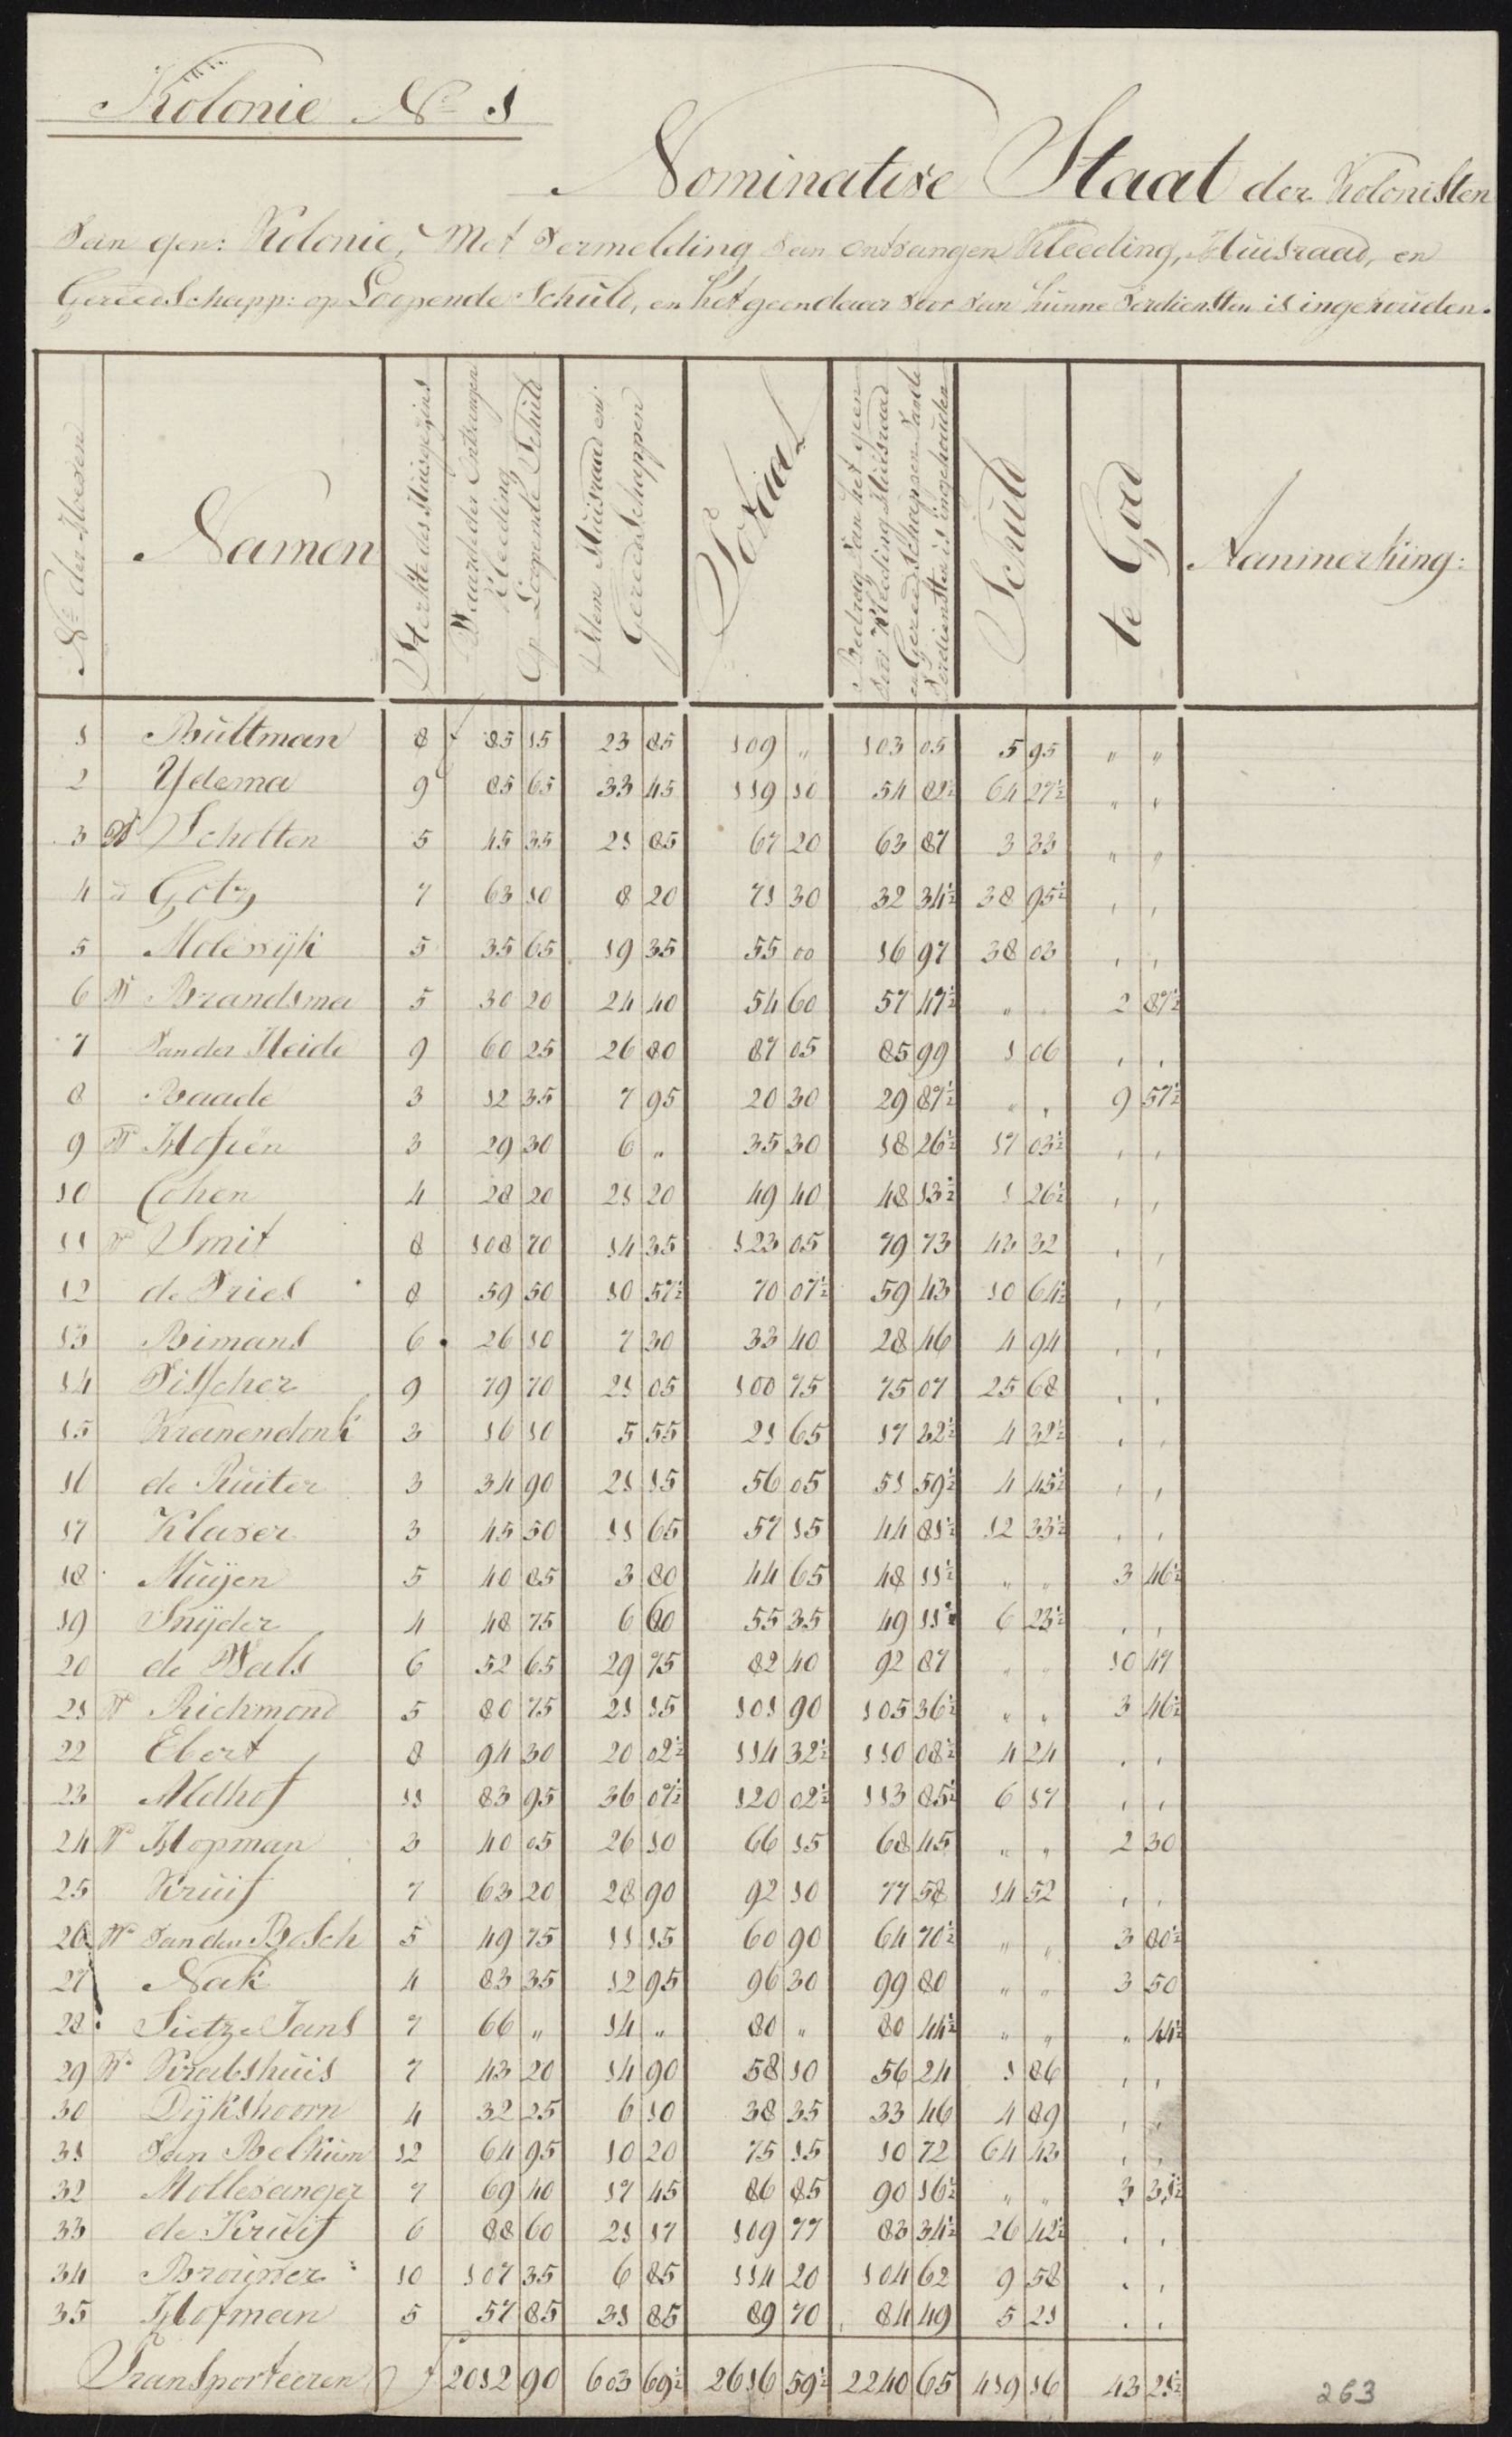 Kolonie No 1
Nominative Staat der Kolonisten
van gen: Kolonie, Met vermelding van ontvangen Kleeding, Huisraad, en
Gereedschapp: op Loopende Schuld, en het geen daar voor van hunne verdiensten is ingehouden.
No der Hoeven
Namen
Sterkte des Huisgezins
Waarde der Ontvangen
Kleeding
Op Loopende Schuld
Idem Huisraad en
Gereedschappen
Totaal
Bedrag van het geen
voor Kleeding Huisraad
en Gereedschappen van de
verdiensten is ingehouden
Schuld
te Goed
Aanmerking:
1 Bultman 8 f 85 15 23 85 109 „ 103 05 5 95 „ „
2 Ydema 9 85 65 33 45 119 10 54 82½ 64 27½ „ „
3 W Scholten 5 45 35 21 85 67 20 63 87 3 33 „ „
4 „ Gotz 7 63 10 8 20 71 30 32 34½ 38 95½ „ „
5 Molewijk 5 35 65 19 35 55 00 16 97 38 03 „ „
6 W Brandsma 5 30 20 24 40 54 60 57 47½ „ „ 2 87½
7 van der Heide 9 60 25 26 80 87 05 85 99 1 06 „ „
8 Baade 3 12 35 7 95 20 30 29 87½ „ „ 9 57½
9 W Hofien 3 29 30 6 „ 35 30 18 26½ 17 03½ „ „
10 Cohen 4 28 20 21 20 49 40 48 13½ 1 26½ „ „
11 W Smit 8 108 70 14 35 123 05 79 73 43 32 „ „
12 de Vries 8 59 50 10 57½ 70 07½ 59 43 10 64½ „ „
13 Bimans 6 26 10 7 30 33 40 28 46 4 94 „ „
14 Visscher 9 79 70 21 05 100 75 75 07 25 68 „ „
15 Kranendonk 3 16 10 5 55 21 65 17 32½ 4 32½ „ „
16 de Ruiter 3 34 90 21 15 56 05 51 59½ 4 45½ „ „
17 Klaver 3 45 50 11 65 57 15 44 81½ 12 33½ „ „
18 Muijen 5 40 85 3 80 44 65 48 11½ „ „ 3 46½
19 Snijder 4 48 75 6 60 55 35 49 11½ 6 23½ „ „
20 de Wals 6 52 65 29 75 82 40 92 87 „ „ 10 47
21 W Richmond 5 80 75 21 15 101 90 105 36½ „ „ 3 46½
22 Ebert 8 94 30 20 02½ 114 32½ 110 08½ 4 24 „ „
23 Melhof 11 83 95 36 07½ 120 02½ 113 85½ 6 17 „ „
24 W Hopman 3 40 05 26 10 66 15 68 45 „ „ 2 30
25 Kruif 7 63 20 28 90 92 10 77 58 14 52 „ „
26 W van den Bosch 5 49 75 11 15 60 90 64 70½ „ „ 3 80½
27 Nak 4 83 35 12 95 96 30 99 80 „ „ 3 50
28 Sietze Jans 7 66 „ 14 „ 80 „ 80 44½ „ „ „ 44½
29 W Krabshuis 7 43 20 14 90 58 10 56 24 1 86 „ „
30 Dijkshoorn 4 32 25 6 10 38 35 33 46 4 89 „ „
31 van Belkum 12 64 95 10 20 75 15 10 72 64 43 „ „
32 Mollevanger 7 69 40 17 45 86 85 90 16½ „ „ 3 31½
33 de Kruif 6 88 60 21 17 109 77 83 34½ 26 42½ „ „
34 Brouwer 10 107 35 6 85 114 20 104 62 9 58 „ „
35 Hofman 5 57 85 31 85 89 70 84 49 5 21 „ „
Transporteeren f 2012 90 603 69½ 2616 59½ 2240 65 419 16 43 21½
263